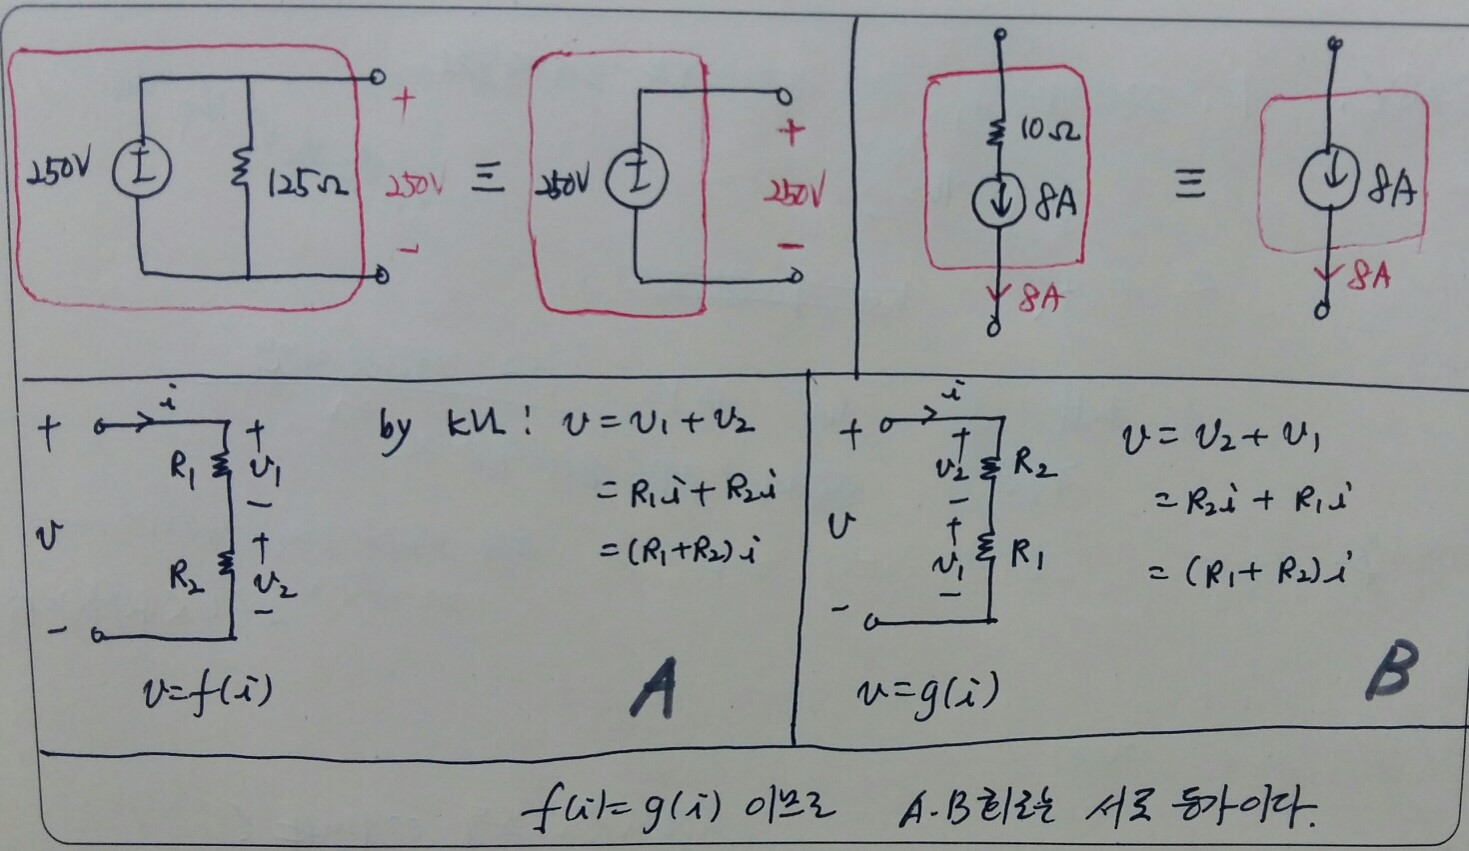 250V 125Ω + 250V - ≡ 250V + 250V -
10Ω 8A 8A ≡ 8A 8A
+ v -
i
R₁ + v₁ -
R₂ + v₂ -
v=f(i)
by KVL: v = v₁ + v₂
= R₁i + R₂i
= (R₁+R₂)i
A
+ v -
i
+ v₂ - R₂
+ v₁ - R₁
v=g(i)
v = v₂ + v₁
= R₂i + R₁i
= (R₁ + R₂)i
B
f(i)=g(i) 이므로 A.B회로는 서로 등가이다.